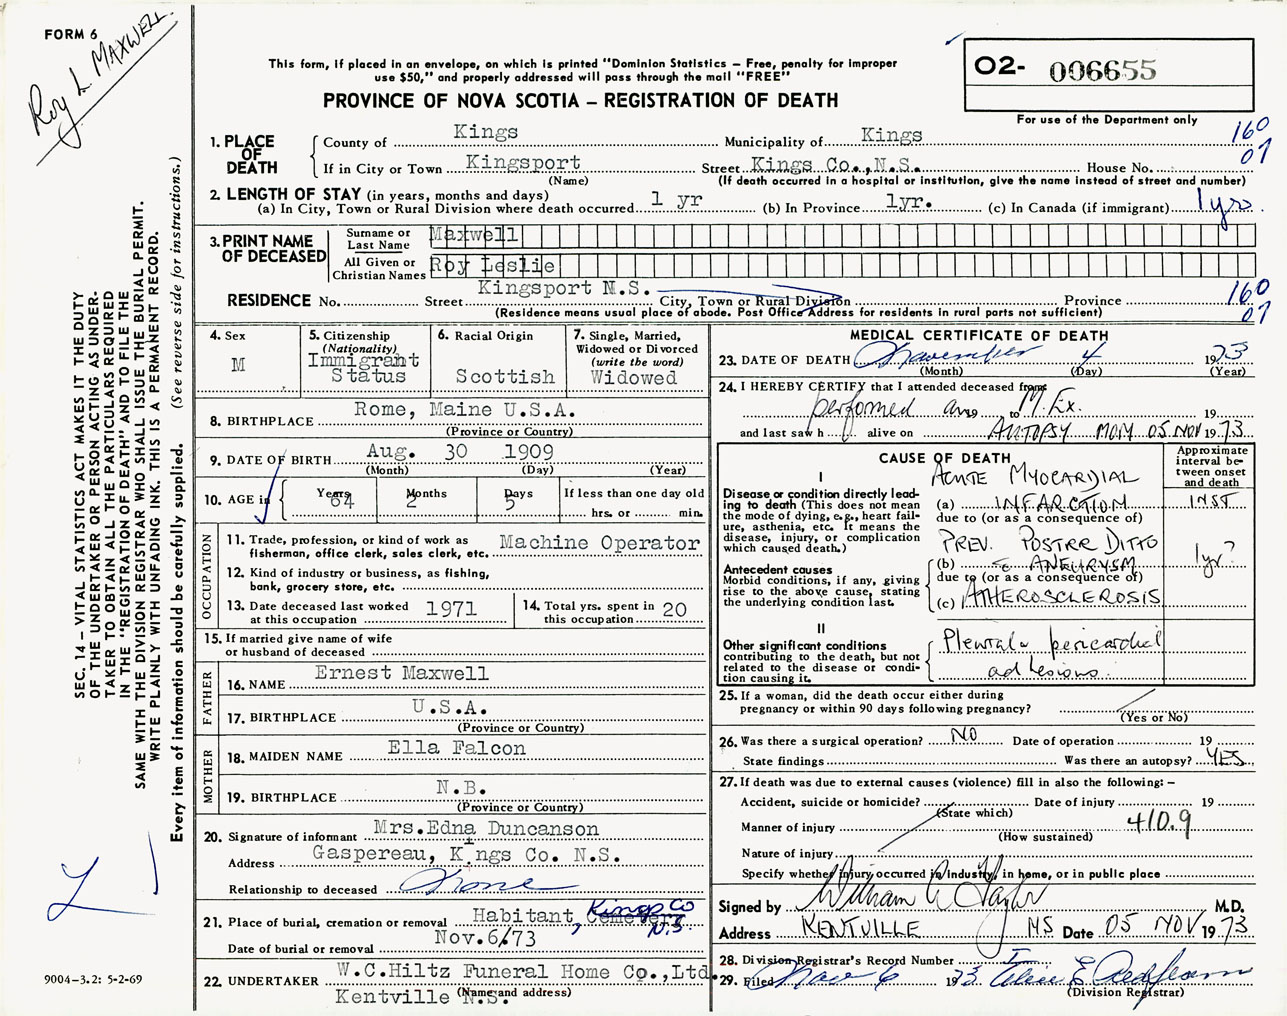 FORM 6
Roy L MAXWELL
This form, if placed in an envelope, on which is printed "Dominion Statistics – Free, penalty for improper
use $50," and properly addressed will pass through the mail "FREE"
PROVINCE OF NOVA SCOTIA – REGISTRATION OF DEATH
02- 006655
For use of the Department only
SEC. 14 – VITAL STATISTICS ACT MAKES IT THE DUTY
OF THE UNDERTAKER OR PERSON ACTING AS UNDER-
TAKER TO OBTAIN ALL THE PARTICULARS REQUIRED
IN THE "REGISTRATION OF DEATH" AND TO FILE THE
SAME WITH THE DIVISION REGISTRAR WHO SHALL ISSUE THE BURIAL PERMIT.
WRITE PLAINLY WITH UNFADING INK. THIS IS A PERMANENT RECORD.
Every item of information should be carefully supplied. (See reverse side for instructions.)
1. PLACE OF DEATH
County of Kings Municipality of Kings 160
If in City or Town Kingsport Street Kings Co., N.S. House No. 07
(Name) (If death occurred in a hospital or institution, give the name instead of street and number)
2. LENGTH OF STAY (in years, months and days)
(a) In City, Town or Rural Division where death occurred 1 yr (b) In Province 1yr. (c) In Canada (if immigrant) 1 yrs
3. PRINT NAME OF DECEASED
Surname or Last Name Maxwell
All Given or Christian Names Roy Leslie
Kingsport N.S.
RESIDENCE No. Street City, Town or Rural Division Province 160
(Residence means usual place of abode. Post Office Address for residents in rural parts not sufficient) 07
4. Sex M
5. Citizenship (Nationality) Immigrant Status
6. Racial Origin Scottish
7. Single, Married, Widowed or Divorced (write the word) Widowed
8. BIRTHPLACE Rome, Maine U.S.A.
(Province or Country)
9. DATE OF BIRTH Aug. 30 1909
(Month) (Day) (Year)
10. AGE in Years 64 Months 2 Days 5 If less than one day old
hrs. or min.
OCCUPATION
11. Trade, profession, or kind of work as
fisherman, office clerk, sales clerk, etc. Machine Operator
12. Kind of industry or business, as fishing,
bank, grocery store, etc.
13. Date deceased last worked
at this occupation 1971
14. Total yrs. spent in
this occupation 20
15. If married give name of wife
or husband of deceased
FATHER
16. NAME Ernest Maxwell
17. BIRTHPLACE U.S.A.
(Province or Country)
MOTHER
18. MAIDEN NAME Ella Falcon
19. BIRTHPLACE N.B.
(Province or Country)
20. Signature of informant Mrs.Edna Duncanson
Address Gaspereau, Kings Co. N.S.
Relationship to deceased None
21. Place of burial, cremation or removal Habitant, Cemetery Kings Co N.S.
Date of burial or removal Nov.6/73
22. UNDERTAKER W.C.Hiltz Funeral Home Co.,Ltd.
Kentville N.S. (Name and address)
MEDICAL CERTIFICATE OF DEATH
23. DATE OF DEATH November 4 1973
(Month) (Day) (Year)
24. I HEREBY CERTIFY that I attended deceased from
performed an 19 to M.Ex. 19
and last saw h alive on AUTOPSY MON 05 NOV 1973
CAUSE OF DEATH
Approximate interval between onset and death
I
Disease or condition directly lead-
ing to death (This does not mean
the mode of dying, e.g., heart fail-
ure, asthenia, etc. It means the
disease, injury, or complication
which caused death.)
ACUTE MYOCARDIAL
(a) INFARCTION INST
due to (or as a consequence of)
PREV. POSTRR DITTO
Antecedent causes
Morbid conditions, if any, giving
rise to the above cause, stating
the underlying condition last.
(b) ANEURYSM 1yr?
due to (or as a consequence of)
(c) ATHEROSCLEROSIS
II
Other significant conditions
contributing to the death, but not
related to the disease or condi-
tion causing it.
Pleural & pericardial
adhesions.
25. If a woman, did the death occur either during
pregnancy or within 90 days following pregnancy?
(Yes or No)
26. Was there a surgical operation? NO Date of operation 19
State findings Was there an autopsy? YES
27. If death was due to external causes (violence) fill in also the following: –
Accident, suicide or homicide? Date of injury 19
(State which)
Manner of injury 410.9
(How sustained)
Nature of injury
Specify whether injury occurred in industry, in home, or in public place
Signed by William A Taylor M.D.
Address KENTVILLE NS Date 05 NOV 1973
28. Division Registrar's Record Number
29. Filed Nov 6 1973
(Division Registrar)
9004-3.2: 5-2-69